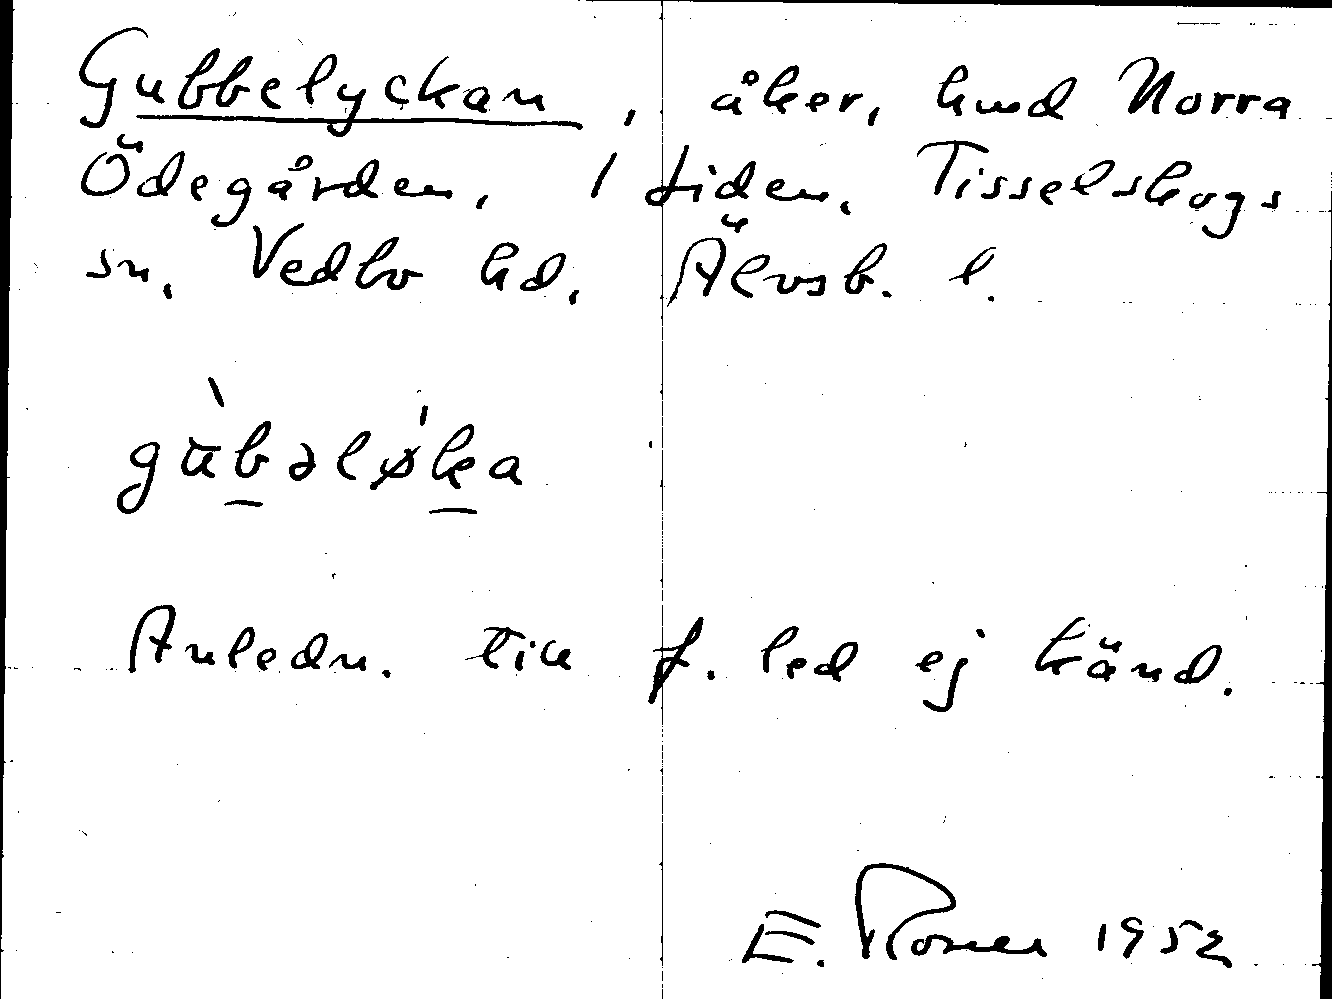 Gubbelyckan, åker, hmd Norra
Ödegården, 1 tiden. Tisselskogs
sn, Vedbo hd, Älvsb. l.
gùbəløka
Anledn. till f. led ej känd.
E. 1952